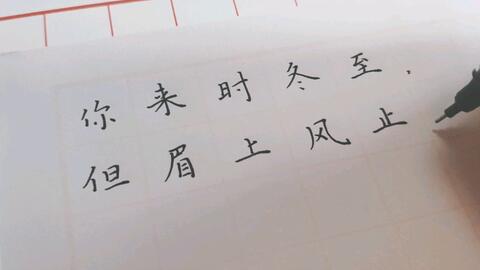 你来时冬至,
但眉上风止